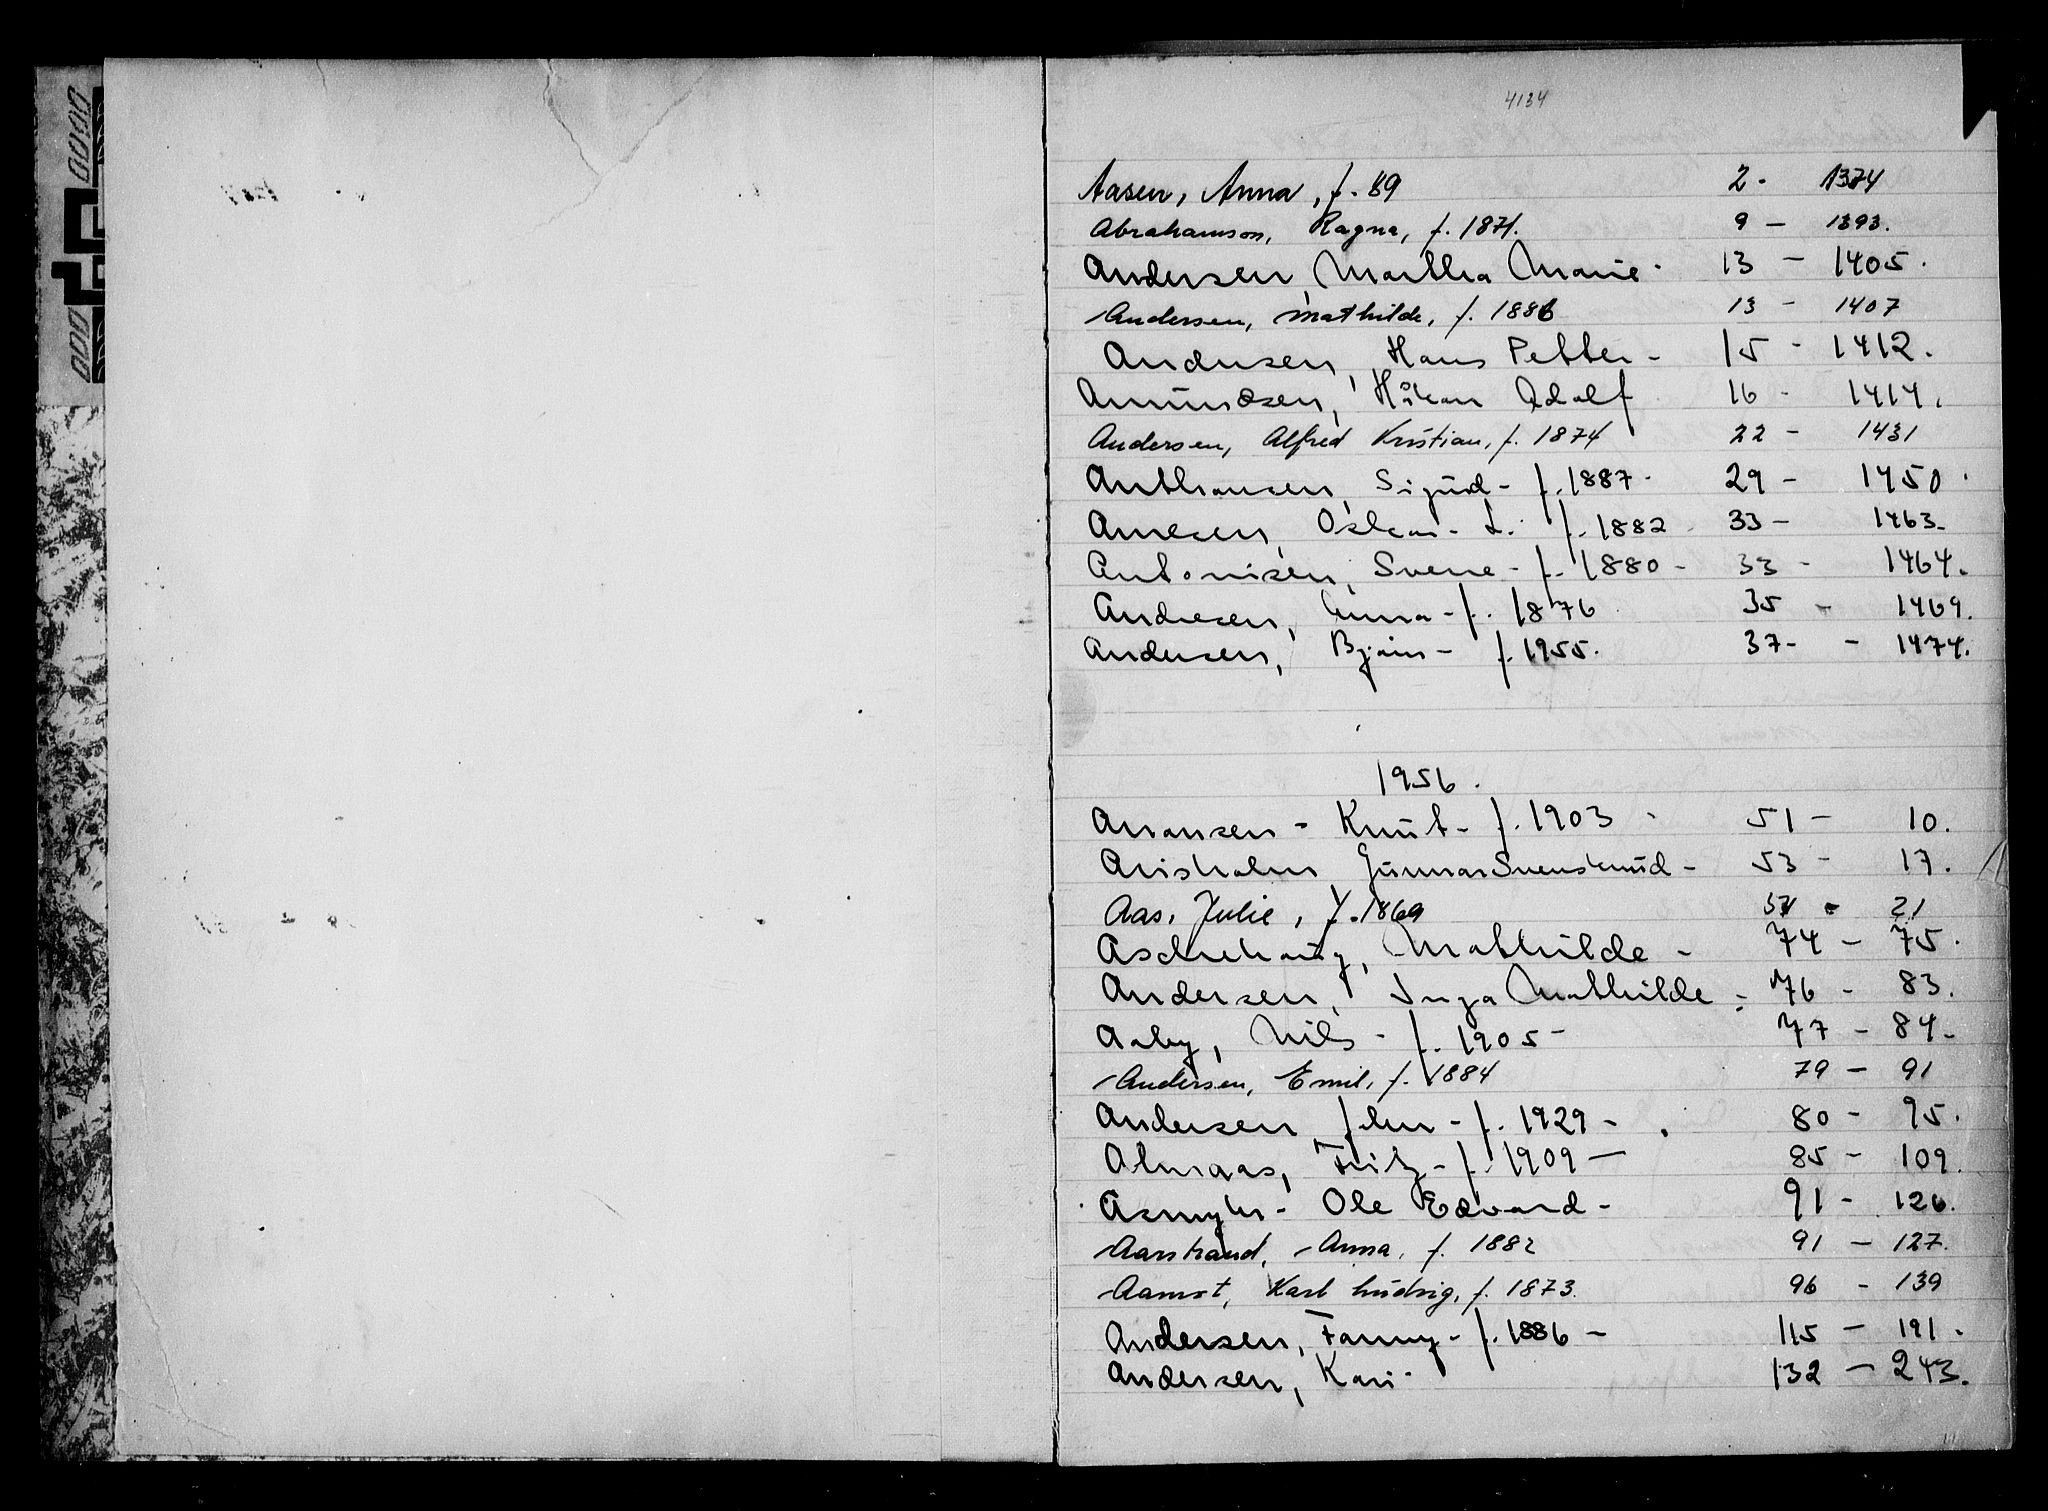 4134
Aasen, Anna, f. 89 2 - 1374
Abrahamson, Ragna, f. 1871. 9 - 1393.
Andersen, Martha Marie - 13 - 1405.
Andersen, Mathilde, f. 1886 13 - 1407
Andersen, Hans Petter - 15 - 1412.
Amundsen, Håkon Adolf 16 - 1414.
Andersen, Alfred Kristian, f. 1874 22 - 1431
Anthonsen, Sigurd - f. 1887 - 29 - 1450.
Arnesen, Oskar - L. f. 1882 - 33 - 1463.
Antonisen, Sverre - f. 1880 - 33 - 1464.
Andresen, Anna - f. 1876 35 - 1469.
Andersen, Bjørn - f. 1955. 37 - - 1474.
1956.
Aronsen - Knut - f. 1903 - 51 - 10.
Arisholm Gunnar 53 - 17.
Aas, Julie, f. 1869 21
Aschehoug, Mathilde - 74 - 75.
Andersen, Inga Mathilde - 76 - 83.
Aaby, Nils - f. 1905 - 77 - 84.
Andersen, Emil, f. 1884 79 - 91
Andersen John - f. 1929 - 80 - 95.
Almaas, Fritz - f. 1909 - 85 - 109.
Asmyhr - Ole Edvard - 91 - 126.
Aarstrand, Anna, f. 1882 91 - 127.
Aamot, Karl Ludvig, f. 1873. 96 - 139
Andersen, Fanny - f. 1886 - 115 - 191.
Andersen, Kari - 132 - 243.